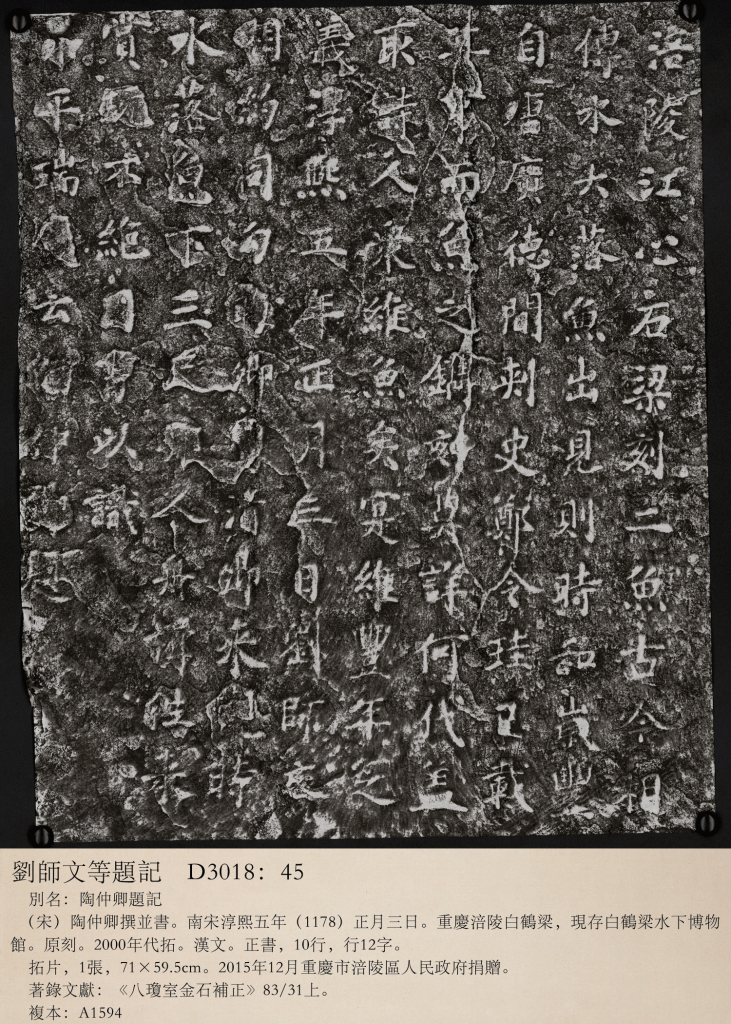 涪陵江心石梁刻二魚古今相
傳水大落魚出見則時和歲豐
自唐廣德間刺史鄭令珪已載
其事而魚之鐫刻莫詳何代盖
取詩人衆維魚矣寔維豐年之
義淳熙五年正月三日劉師文
相約同勾晦卿賈清卿來觀時
水落魚下三尺邦人舟來
賞玩不絕因書以識
升平瑞慶云陶仲卿題
劉師文等題記 D3018：45
別名：陶仲卿題記
（宋）陶仲卿撰並書。南宋淳熙五年（1178）正月三日。重慶涪陵白鶴梁，現存白鶴梁水下博物
館。原刻。2000年代拓。漢文。正書，10行，行12字。
拓片，1張，71×59.5cm。2015年12月重慶市涪陵區人民政府捐贈。
著錄文獻：《八瓊室金石補正》83/31上。
複本：A1594